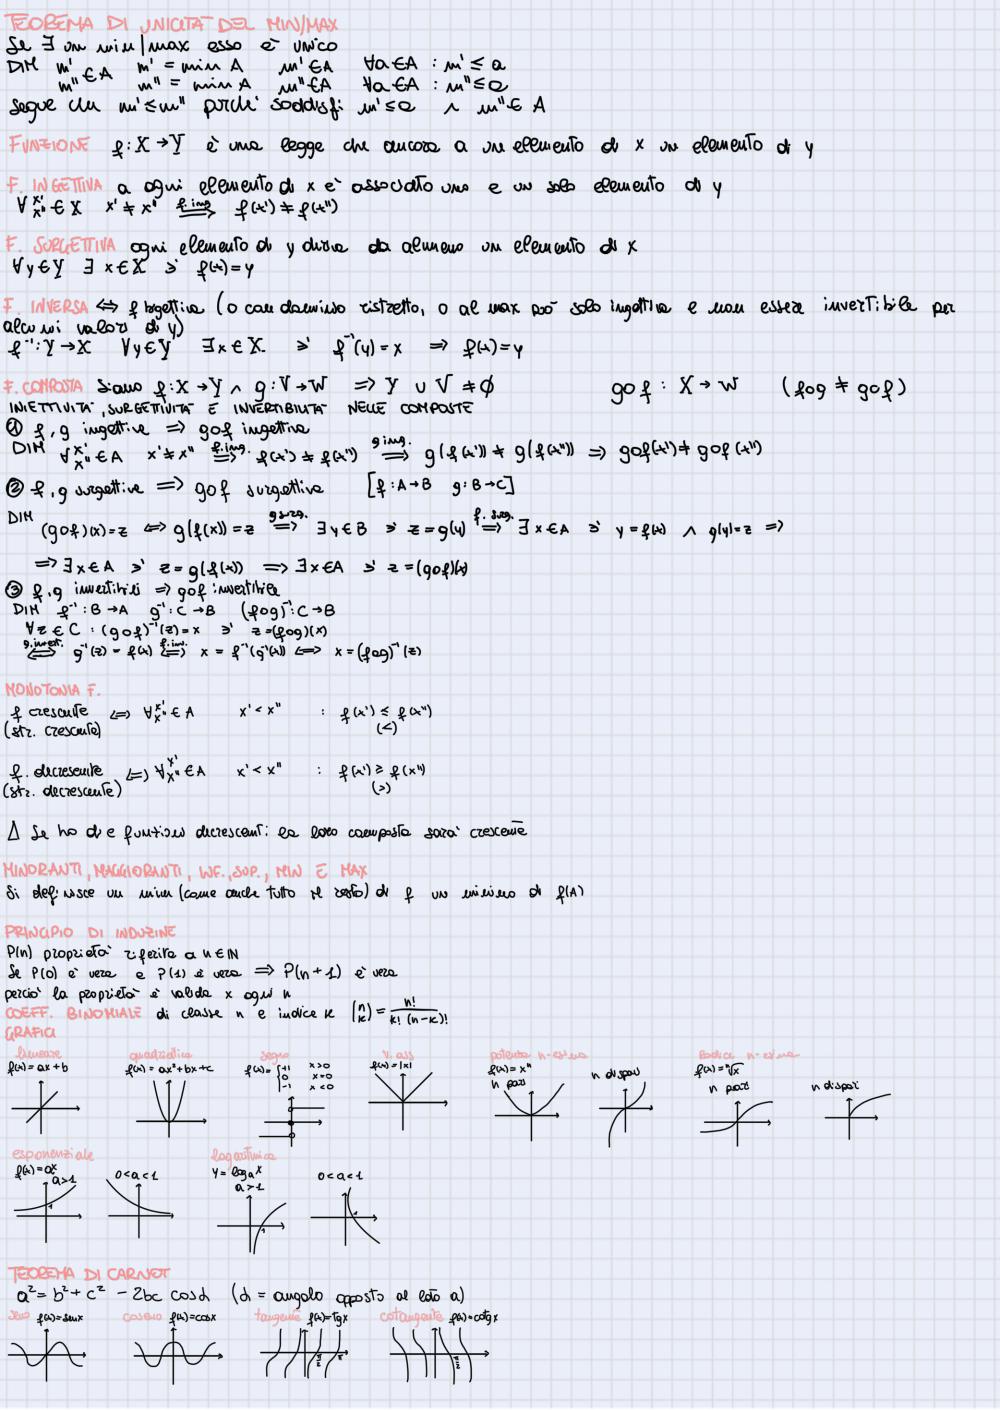 TEOREMA DI UNICITÀ DEL MIN/MAX
Se ∃ un min/max esso è unico
DIM m' m'' ∈ A m' = min A m' ∈ A ∀a∈A : m' ≤ a
m'' = min A m'' ∈ A ∀a∈A : m'' ≤ a
segue che m' ≤ m'' perché soddisfi m' ≤ a ∧ m'' ∈ A
FUNZIONE f: X → Y è una legge che ancora a un elemento di x un elemento di y
F. INGETTIVA a ogni elemento di x è associato uno e un solo elemento di y
∀ x' x'' ∈ X x' ≠ x'' f.ing ⟹ f(x') ≠ f(x'')
F. SURGETTIVA ogni elemento di y deriva da almeno un elemento di x
∀y∈Y ∃ x∈X ∋' f(x)=y
F. INVERSA ⟺ f bigettiva (o con dominio ristretto, o al max può solo ingettiva e non essere invertibile per
alcuni valori di y)
f⁻¹: Y → X ∀y∈Y ∃x∈X ∋' f⁻¹(y) = x ⟹ f(x)=y
F. COMPOSTA Siano f: X → Y ∧ g: V → W ⟹ Y ∪ V ≠ ∅ g∘f : X → W (f∘g ≠ g∘f)
INIETTIVITÀ, SURGETTIVITÀ E INVERTIBILITÀ NELLE COMPOSTE
① f, g ingettive ⟹ g∘f ingettiva
DIM ∀ x' x'' ∈ A x' ≠ x'' f.ing. ⟹ f(x') ≠ f(x'') g ing. ⟹ g(f(x')) ≠ g(f(x'')) ⟹ g∘f(x') ≠ g∘f(x'')
② f, g surgettive ⟹ g∘f surgettiva [f: A→B g: B→C]
DIM (g∘f)(x)=z ⟺ g(f(x))=z g surg. ⟹ ∃y∈B ∋' z=g(y) f. surg. ⟹ ∃x∈A ∋' y=f(x) ∧ g(y)=z ⟹
⟹ ∃x∈A ∋' z=g(f(x)) ⟹ ∃x∈A ∋' z=(g∘f)(x)
③ f, g invertibili ⟹ g∘f invertibile
DIM f⁻¹: B→A g⁻¹: C→B (f∘g)⁻¹: C→B
∀z∈C : (g∘f)⁻¹(z)=x ∋' z=(f∘g)(x)
g.invert. ⟺ g⁻¹(z) = f(x) f.inv. ⟺ x = f⁻¹(g⁻¹(x)) ⟺ x=(f∘g)⁻¹(z)
MONOTONIA F.
f crescente ⟺ ∀ x' x'' ∈ A x' < x'' : f(x') ≤ f(x'')
(str. crescente) (<)
f. decrescente ⟺ ∀ x' x'' ∈ A x' < x'' : f(x') ≥ f(x'')
(str. decrescente) (>)
Δ Se ho due funzioni decrescenti la loro composta sarà crescente
MINORANTI, MAGGIORANTI, INF., SUP., MIN E MAX
Si definisce un min (come anche tutto il resto) di f un minimo di f(A)
PRINCIPIO DI INDUZINE
P(n) proprietà riferita a n∈ℕ
Se P(0) è vera e P(1) è vera ⟹ P(n+1) è vera
perciò la proprietà è valida x ogni n
COEFF. BINOMIALE di classe n e indice k (n k) = n! / k! (n-k)!
GRAFICI
lineare quadratica segno v. ass potenza n-esima Radice n-esima
f(x)=ax+b f(x)=ax²+bx+c f(x)= {+1 x>0 0 x=0 -1 x<0 f(x)=|x| f(x)=xⁿ n pari n dispari f(x)=ⁿ√x n pari n dispari
esponenziale logaritmica
f(x)=aˣ a>1 0<a<1 y=logₐx a>1 0<a<1
1 1 1
TEOREMA DI CARNOT
a² = b² + c² - 2bc cosα (α = angolo opposto al lato a)
seno f(x)=senx coseno f(x)=cosx tangente f(x)=tgx cotangente f(x)=cotgx